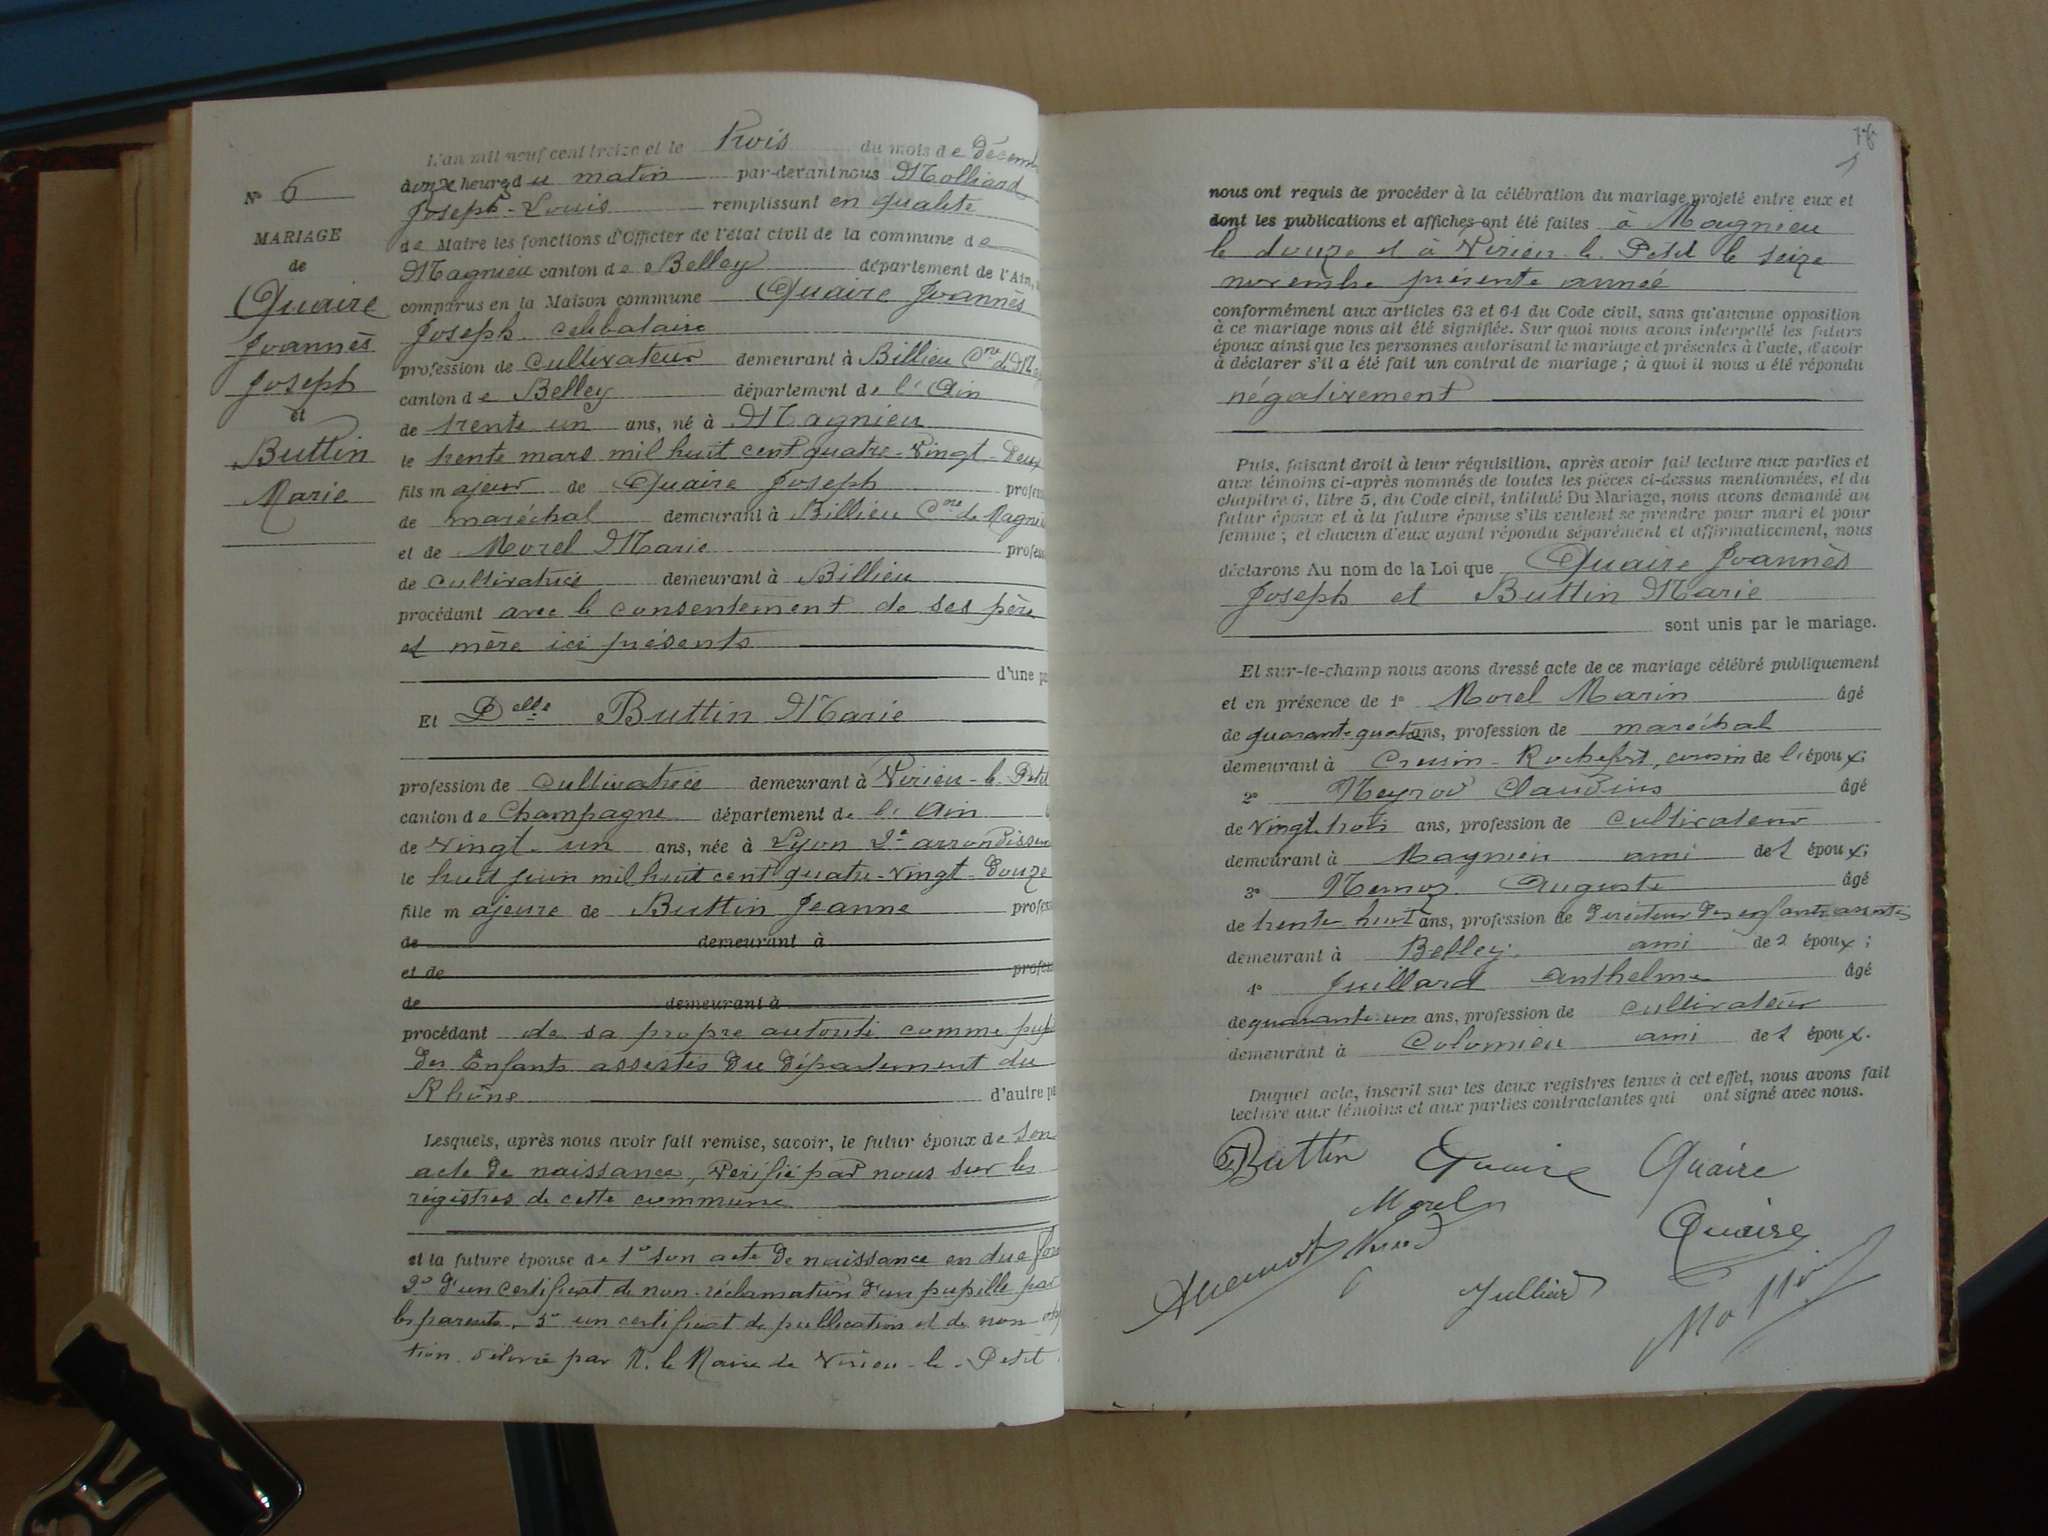 N° 6
MARIAGE
de
Quaire
Joannès
Joseph
et
Buttin
Marie
L'an mil neuf cent treize et le Trois du mois de décem
heures du matin par-devant nous Molliard
Joseph-Louis remplissant en qualité
de Maire les fonctions d'Officier de l'état civil de la commune de
Magnieu canton de Belley département de l'Ain,
comparus en la Maison commune Quaire Joannès
Joseph célibataire
profession de cultivateur demeurant à Billieu Cne de Mag
canton de Belley département de l'Ain
de trente un ans, né à Magnieu
le trente mars mil huit cent quatre-Vingt-Deux
fils majeur de Quaire Joseph profes
de maréchal demeurant à Billieu Cne de Magni
et de Morel Marie profess
de cultivatrice demeurant à Billieu
procédant avec le consentement de ses père
et mère ici présents
d'une pa
Et Delle Buttin Marie
profession de Cultivatrice demeurant à Virieu-le-Petit
canton de Champagne département de l'Ain
de Vingt-un ans, née à Lyon 2e arrondissem
le huit juin mil huit cent quatre-vingt-Douze
fille majeure de Buttin Jeanne profess
de demeurant à
et de profess
de demeurant à
procédant de sa propre autorité comme pupi
des Enfants assistés du département du
Rhône d'autre pa
Lesquels, après nous avoir fait remise, savoir, le futur époux de son
acte de naissance, vérifié par nous sur les
régistres de cette commune
et la future épouse de 1° son acte de naissance en due for
2° d'un certificat de non-réclamation d'un pupille par
les parents, 3° un certificat de publication et de non-op
tion délivré par M. le Maire de Virieu-le-Petit
78
nous ont requis de procéder à la célébration du mariage projeté entre eux et
dont les publications et affiches ont été faites à Magnieu
le douze et à Virieu le Petit le seize
novembre présente année
conformément aux articles 63 et 64 du Code civil, sans qu'aucune opposition
à ce mariage nous ait été signifiée. Sur quoi nous avons interpellé les futurs
époux ainsi que les personnes autorisant le mariage et présentes à l'acte, d'avoir
à déclarer s'il a été fait un contrat de mariage ; à quoi il nous a été répondu
négativement
Puis, faisant droit à leur réquisition, après avoir fait lecture aux parties et
aux témoins ci-après nommés de toutes les pièces ci-dessus mentionnées, et du
chapitre 6, titre 5, du Code civil, intitulé Du Mariage, nous avons demandé au
futur époux et à la future épouse s'ils veulent se prendre pour mari et pour
femme ; et chacun d'eux ayant répondu séparément et affirmativement, nous
déclarons Au nom de la Loi que Quaire Joannès
Joseph et Buttin Marie
sont unis par le mariage.
Et sur-le-champ nous avons dressé acte de ce mariage célébré publiquement
et en présence de 1° Morel Marin âgé
de quarante-quatre ans, profession de maréchal
demeurant à Cressin-Rochefort, cousin de l'époux;
2° Claudius âgé
de Vingt-trois ans, profession de cultivateur
demeurant à Magnieu ami de l'époux;
3° Auguste âgé
de trente huit ans, profession de Directeur des enfants assistés
demeurant à Belley, ami de 2 époux ;
4° Juillard Anthelme âgé
de quarante-un ans, profession de cultivateur
demeurant à Colomieu ami de l'époux.
Duquel acte, inscrit sur les deux registres tenus à cet effet, nous avons fait
lecture aux témoins et aux parties contractantes qui ont signé avec nous.
Buttin Quaire Quaire
Morel
Quaire